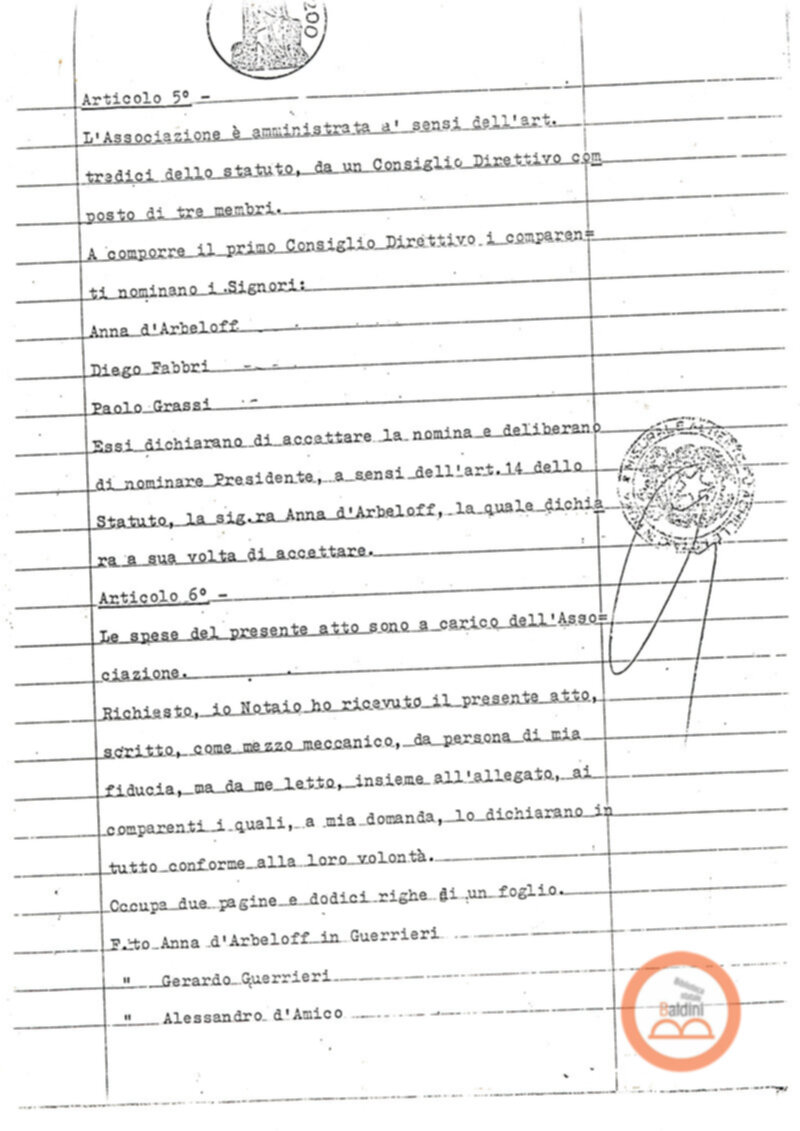 200
Articolo 5° -
L'Associazione è amministrata a' sensi dell'art.
tredici dello statuto, da un Consiglio Direttivo com
posto di tre membri.
A comporre il primo Consiglio Direttivo i comparen=
ti nominano i Signori:
Anna d'Arbeloff
Diego Fabbri
Paolo Grassi
Essi dichiarano di accettare la nomina e deliberano
di nominare Presidente, a sensi dell'art.14 dello
Statuto, la sig.ra Anna d'Arbeloff, la quale dichia
ra a sua volta di accettare.
Articolo 6° -
Le spese del presente atto sono a carico dell'Asso=
ciazione.
Richiesto, io Notaio ho ricevuto il presente atto,
scritto, come mezzo meccanico, da persona di mia
fiducia, ma da me letto, insieme all'allegato, ai
comparenti i quali, a mia domanda, lo dichiarano in
tutto conforme alla loro volontà.
Occupa due pagine e dodici righe di un foglio.
F.to Anna d'Arbeloff in Guerrieri
" Gerardo Guerrieri
" Alessandro d'Amico
Biblioteca
statale
Baldini